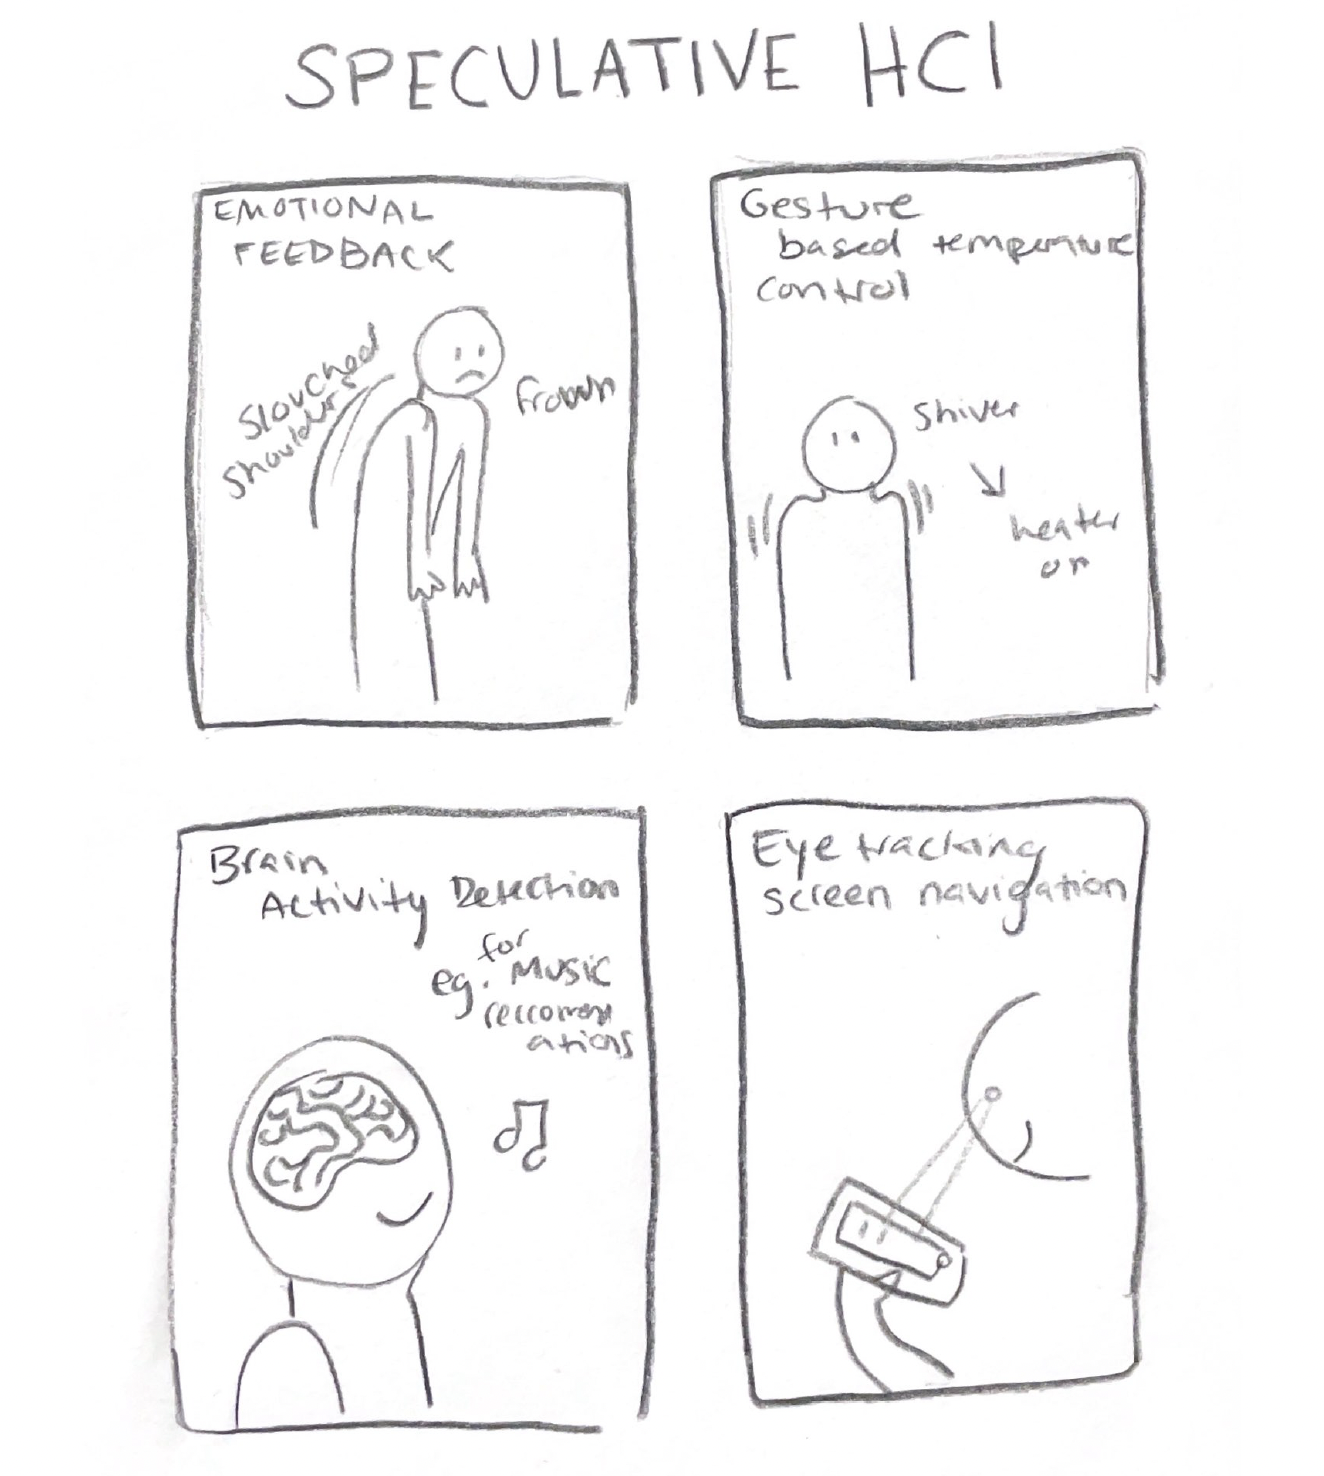 SPECULATIVE HCI
EMOTIONAL
FEEDBACK
Slouched
Shoulders
frown
Gesture
based temperature
control
Shiver
heater
on
Brain
Activity Detection
for
eg. Music
reccomend
ations
Eye tracking
screen navigation